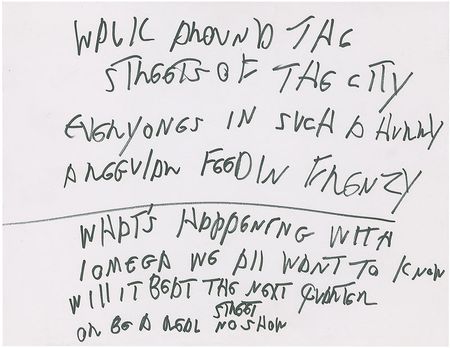 WALK AROUND THE
STREETS OF THE CITY
EVERYONES IN SUCH A HURRY
A REGULAR FEEDIN FRENZY
WHAT'S HAPPENING WITH
IOMEGA WE All WANT TO KNOW
WILL IT BEAT THE NEXT QUARTER
STREET
OR BE A REAL NO SHOW